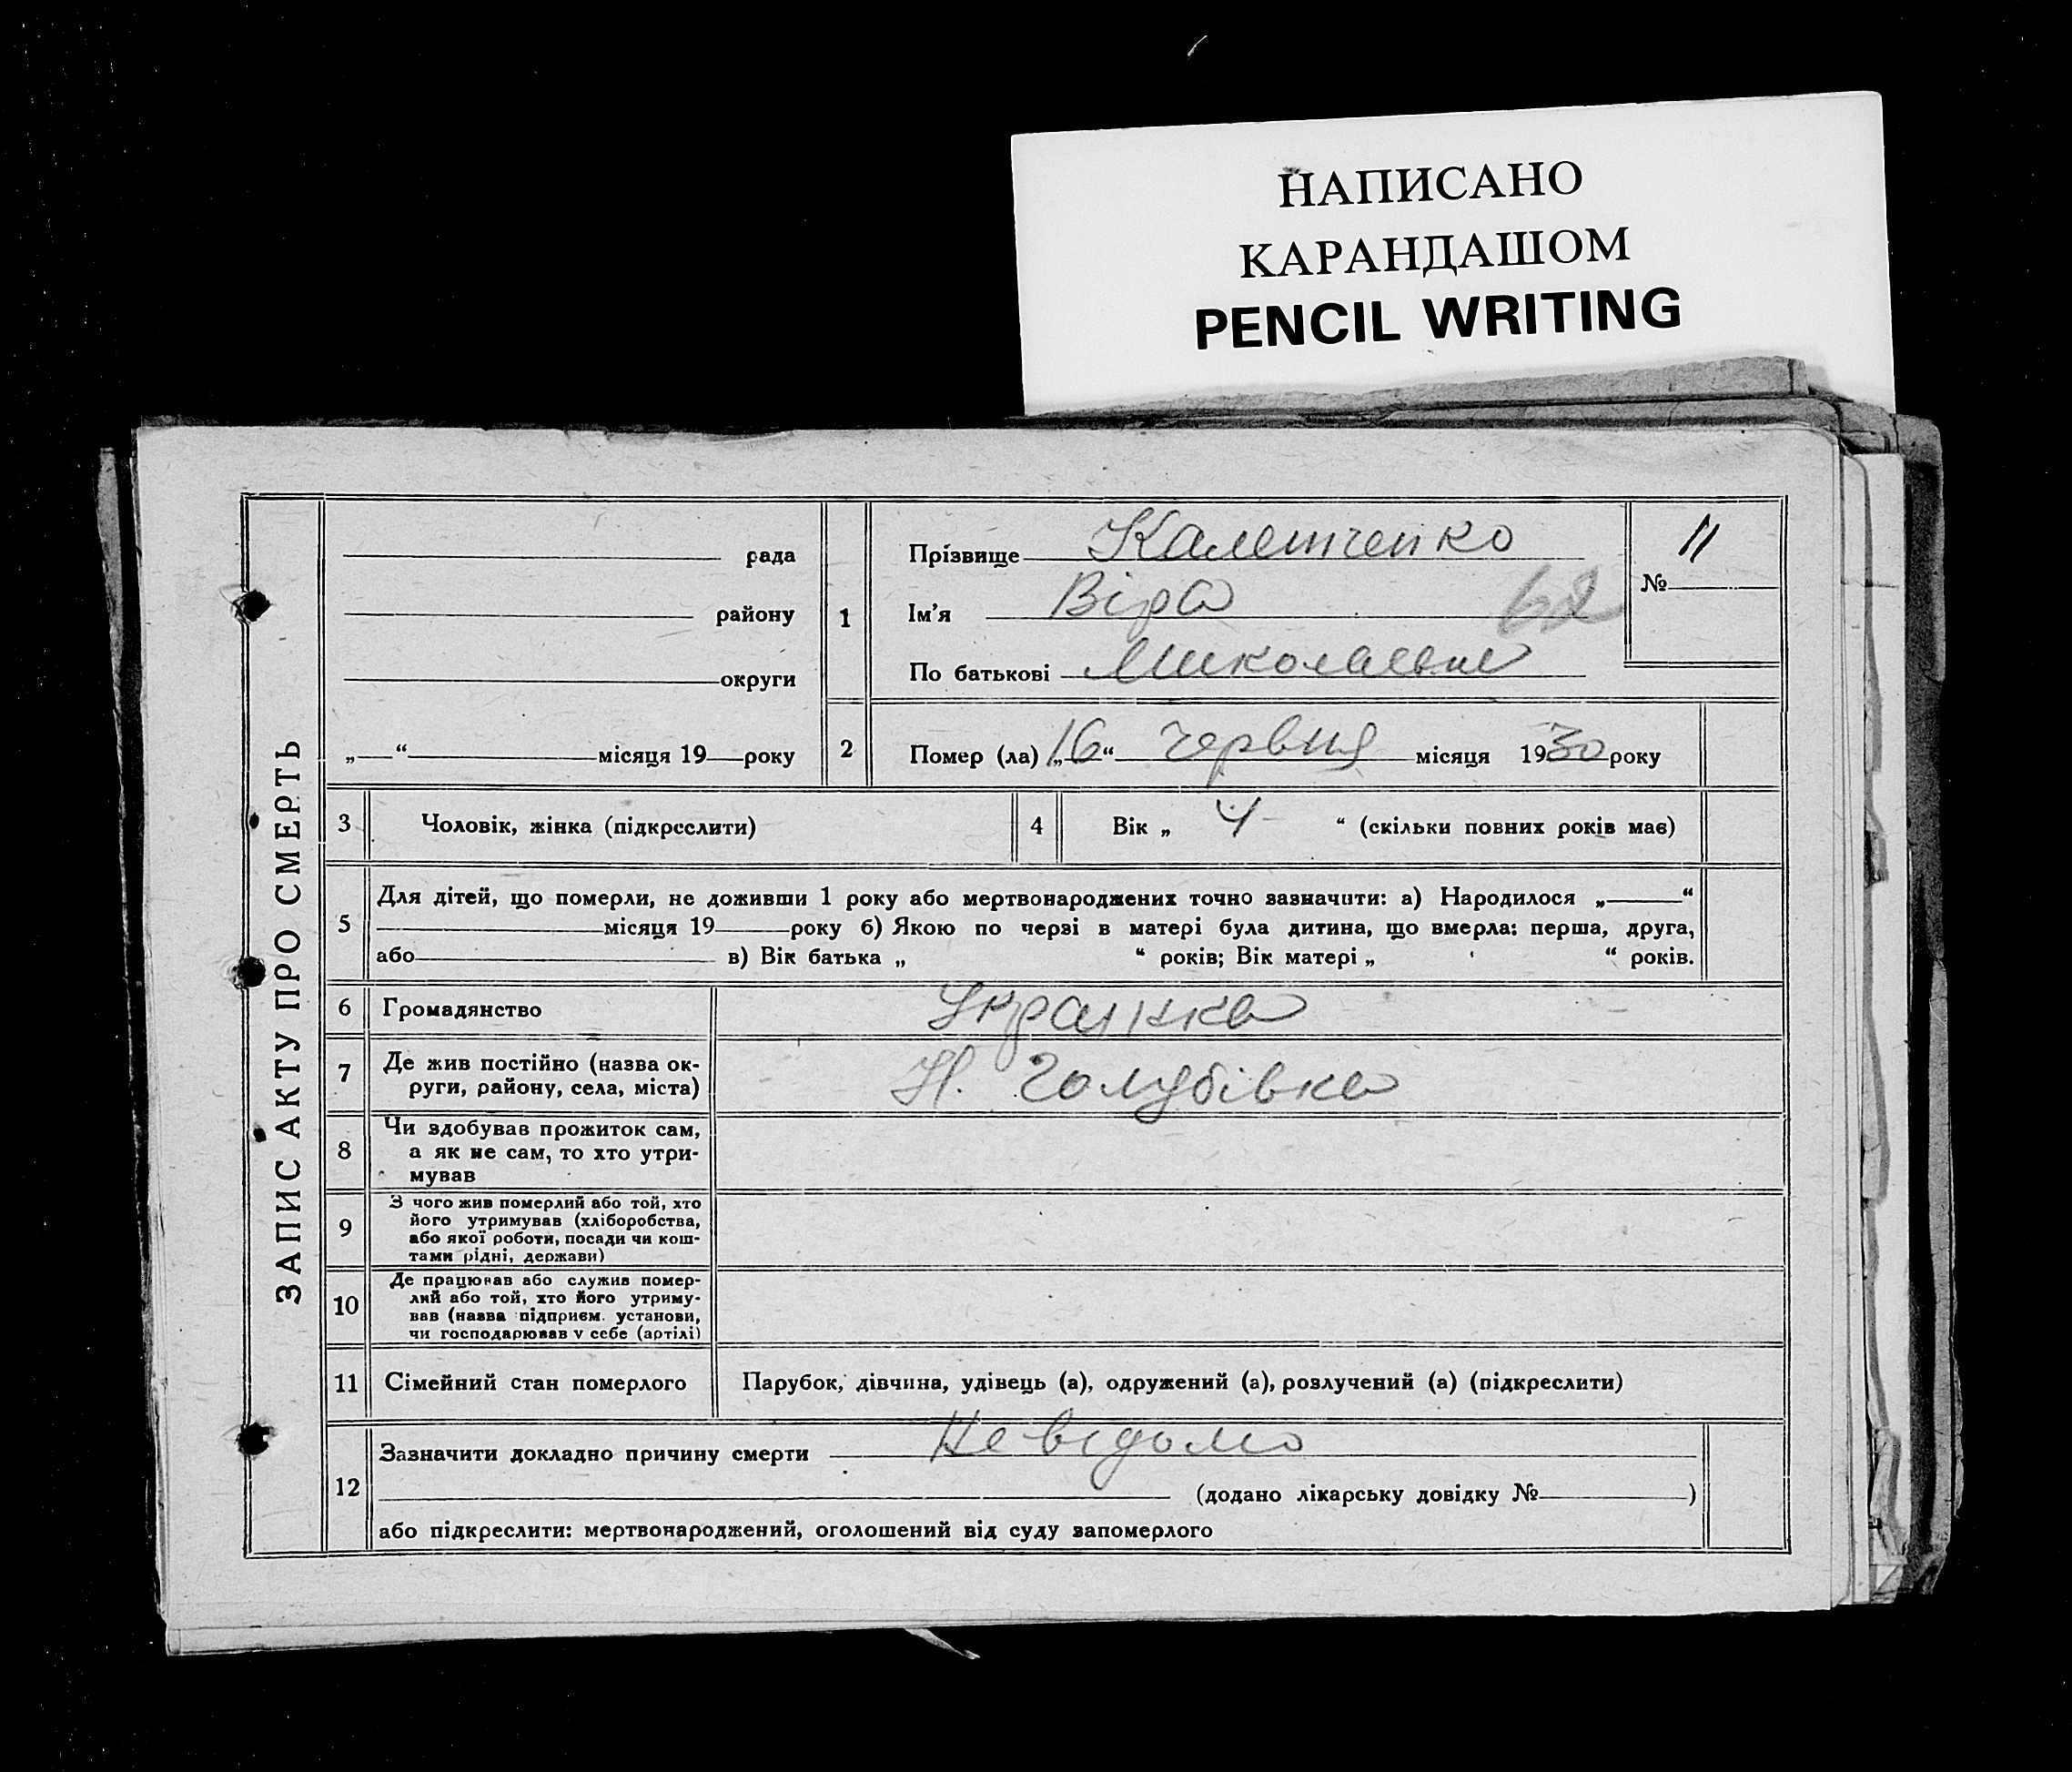 НАПИСАНО
КАРАНДАШОМ
PENCIL WRITING
ЗАПИС АКТУ ПРО СМЕРТЬ
рада
району
округи
„ “ місяця 19 року
1
Прізвище
Ім’я Віра
62
По батькові
№ 11
2
Помер (ла) „16“ червня місяця 1930 року
3
Чоловік, жінка (підкреслити)
4
Вік „ 4 “ (скільки повних років має)
5
Для дітей, що померли, не доживши 1 року або мертвонароджених точно зазначити: а) Народилося „ “
місяця 19 року б) Якою по черзі в матері була дитина, що вмерла: перша, друга,
або в) Вік батька „ “ років; Вік матері „ “ років.
6
Громадянство
7
Де жив постійно (назва ок-
руги, району, села, міста)
Н. Голубівка
8
Чи здобував прожиток сам,
а як не сам, то хто утри-
мував
9
З чого жив померлий або той, хто
його утримував (хліборобства,
або якої роботи, посади чи кош-
тами рідні, держави)
10
Де працював або служив помер-
лий або той, хто його утриму-
вав (назва підприєм. установи,
чи господарював у себе (артілі)
11
Сімейний стан померлого
Парубок, дівчина, удівець (а), одружений (а), розлучений (а) (підкреслити)
12
Зазначити докладно причину смерти Невідомо
(додано лікарську довідку № )
або підкреслити: мертвонароджений, оголошений від суду запомерлого